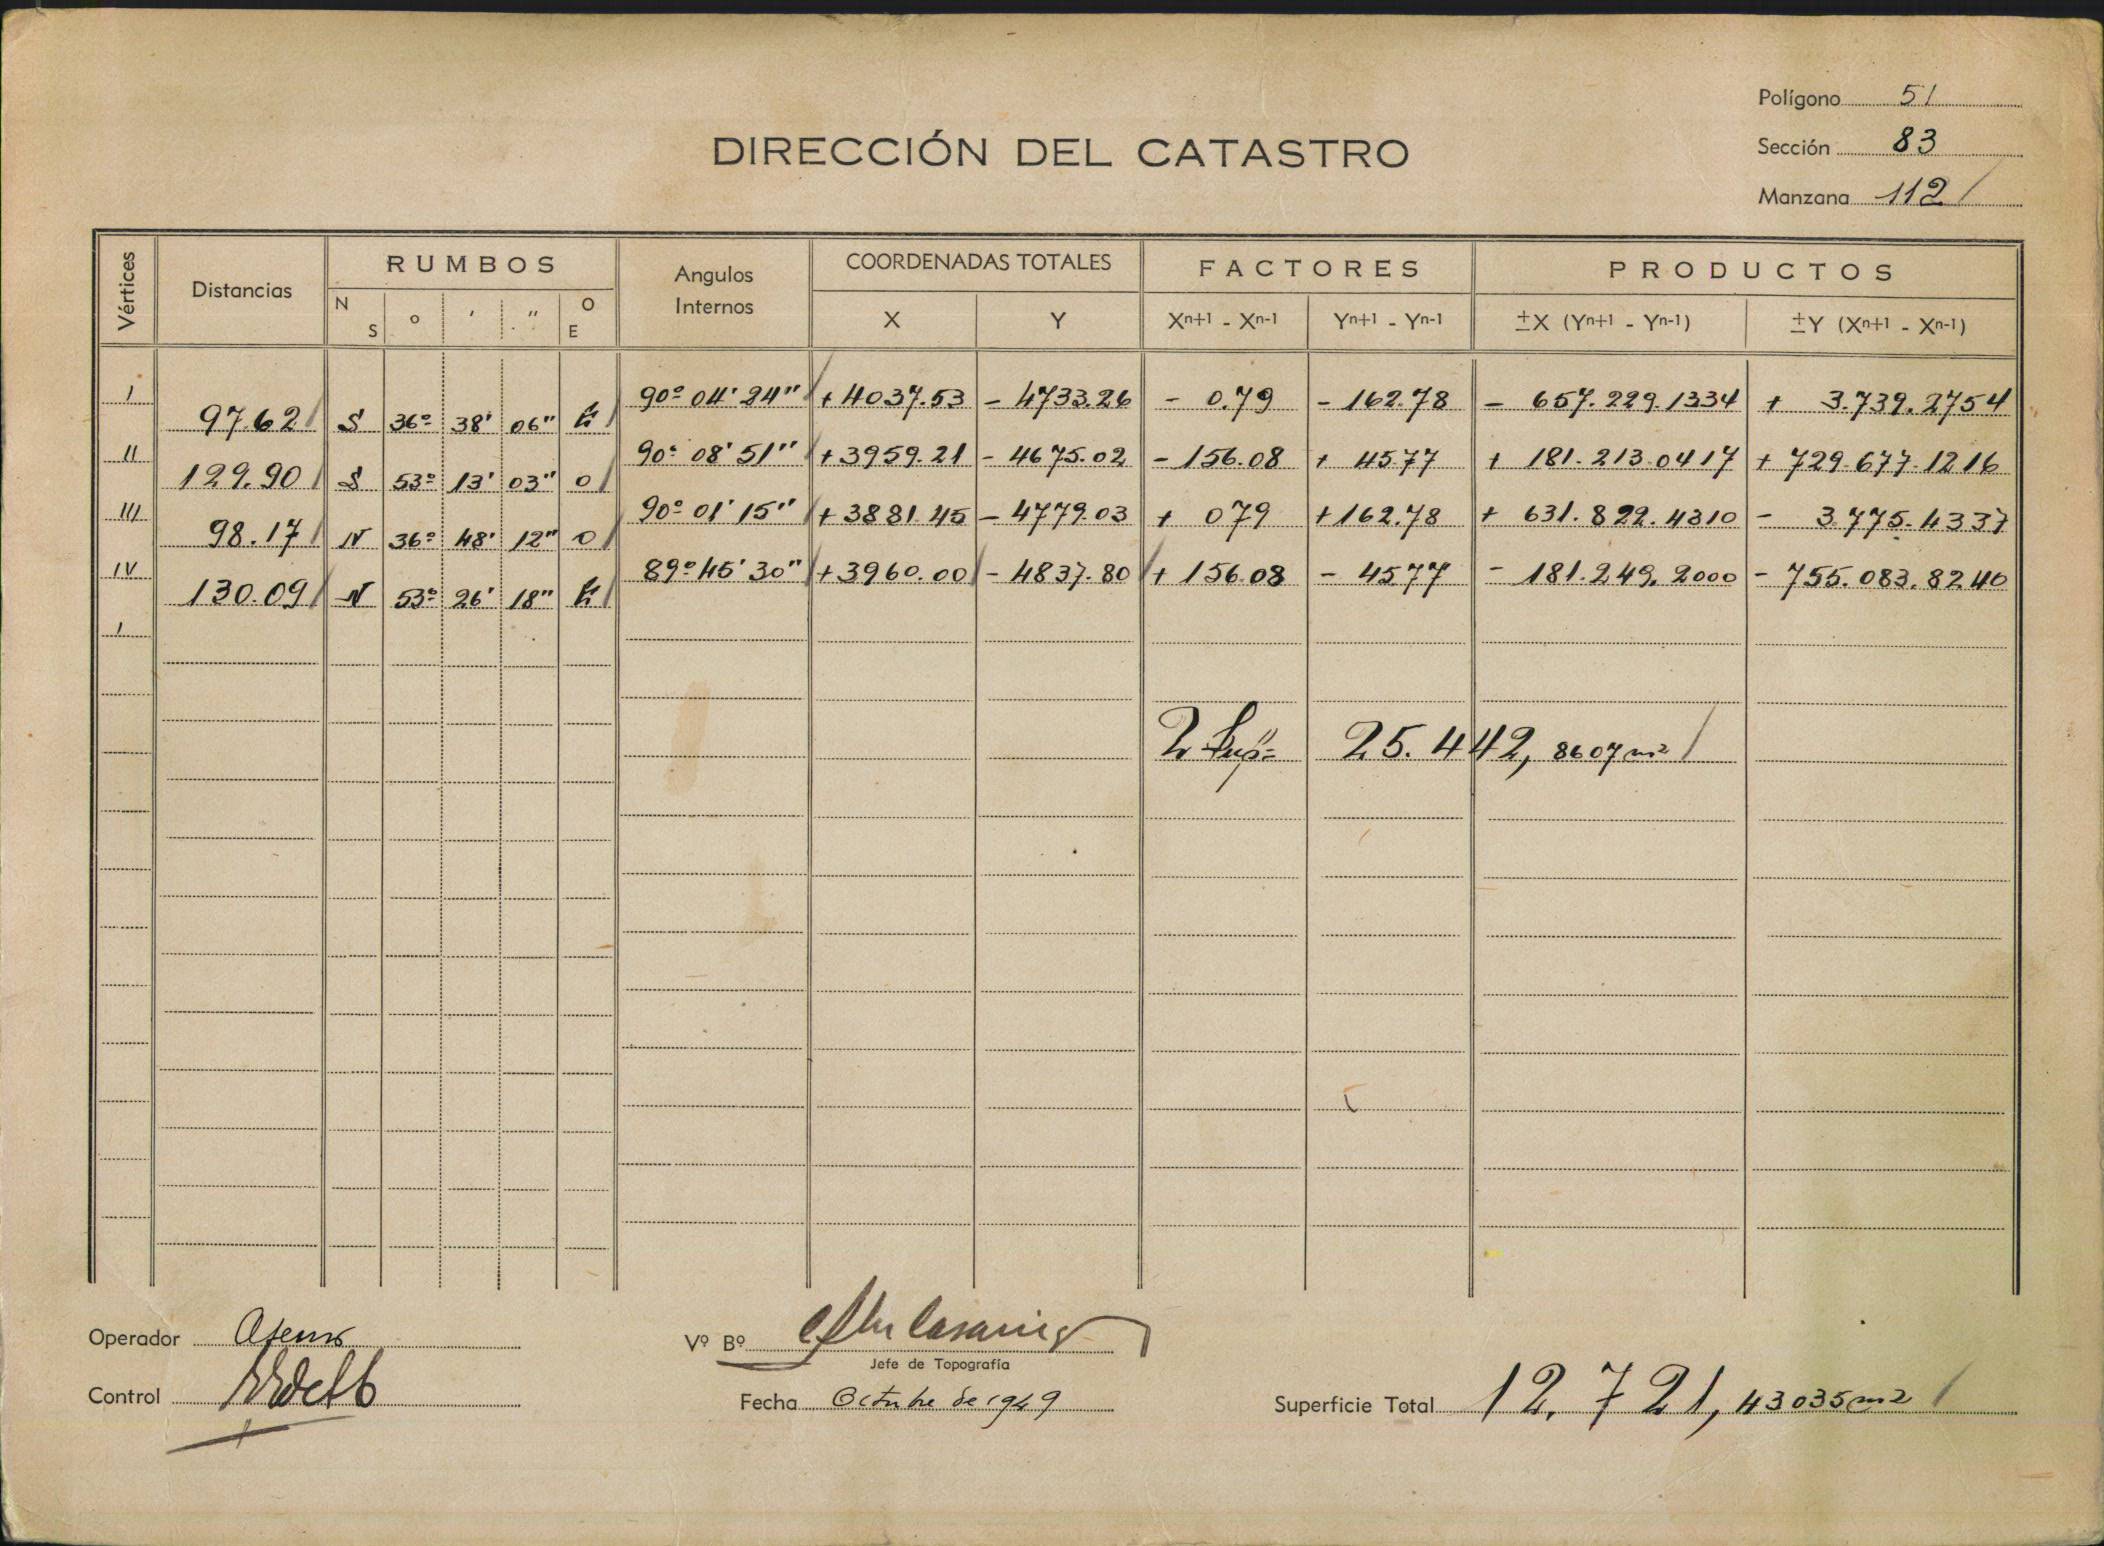 Polígono 51
DIRECCIÓN DEL CATASTRO
Sección 83
Manzana 112
Vértices Distancias RUMBOS Angulos Internos COORDENADAS TOTALES FACTORES PRODUCTOS
N S o ' " O E X Y Xn+1 - Xn-1 Yn+1 - Yn-1 ±X (Yn+1 - Yn-1) ±Y (Xn+1 - Xn-1)
I 90º 04' 24" +4037.53 - 4733.26 - 0.79 - 162.78 - 657.229.1334 + 3.739.2754
97.62 S 36º 38' 06" E
II 90º 08' 51" +3959.21 - 4675.02 - 156.08 + 45.77 + 181.213.0417 + 729.677.1216
129.90 S 53º 13' 03" O
III 90º 01' 15" +3881.45 - 4779.03 + 079 +162.78 + 631.822.4310 - 3.775.4337
98.17 N 36º 48' 12" O
IV 89º 45' 30" +3960.00 - 4837.80 + 156.08 - 45.77 - 181.249.2000 - 755.083.8240
130.09 N 53º 26' 18" E
I
2 Sup= 25.442,8607 m2
Operador
Vº Bº
Jefe de Topografía
Control
Fecha Octubre de 1949
Superficie Total 12.721,43035 m2